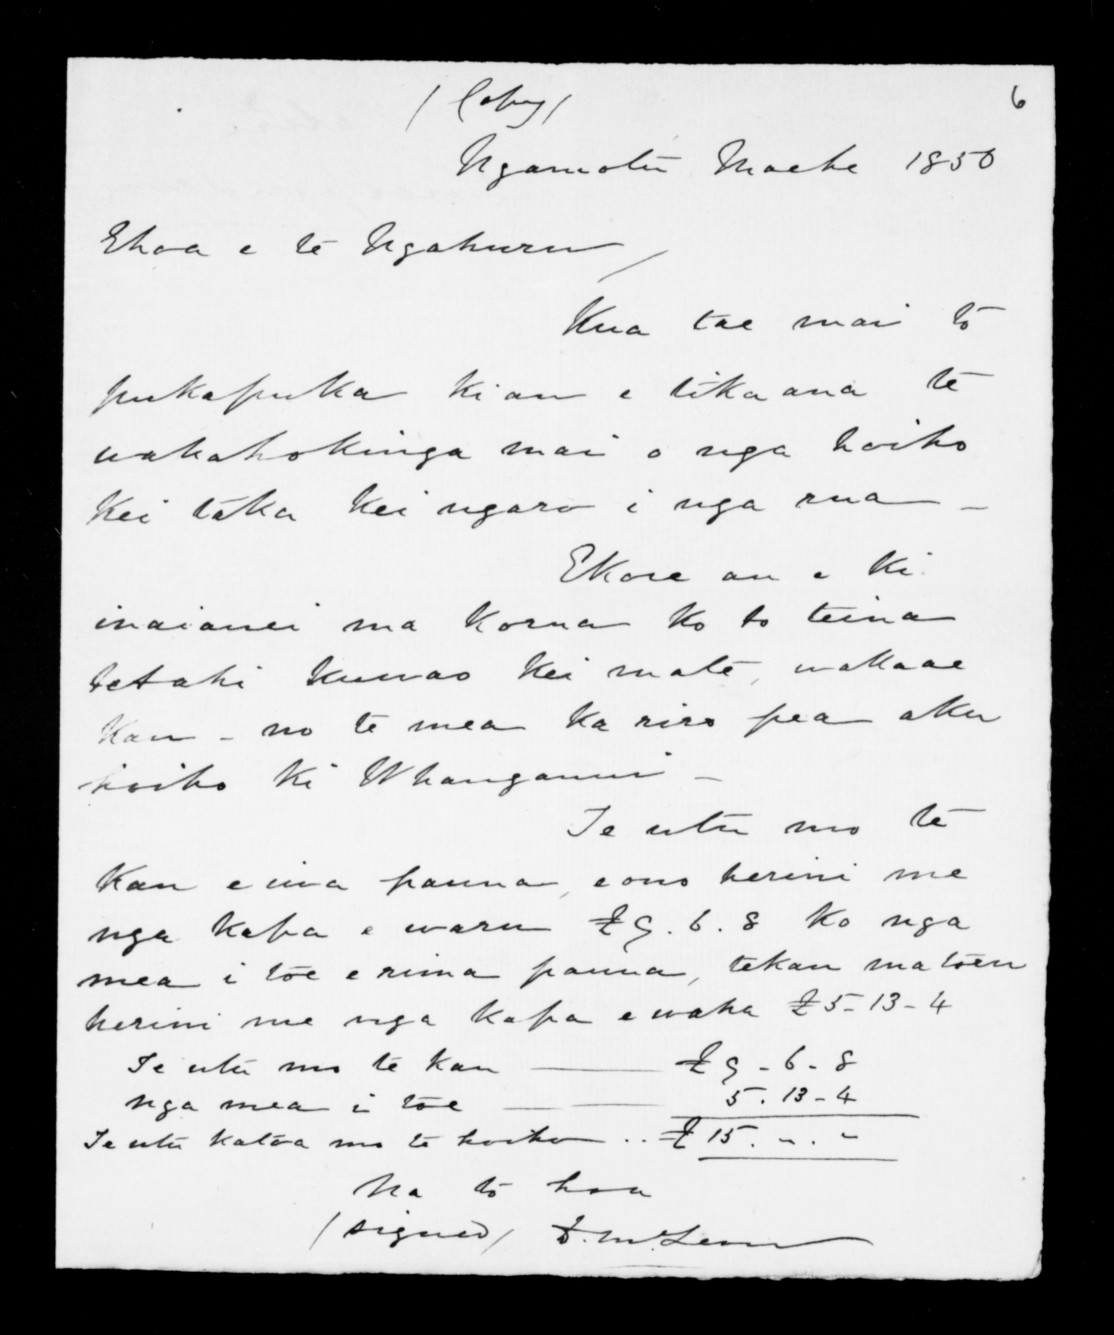 (Copy)
6
Ngamotu Maehe 1850
Ehoa e te Ngahuru
Kua tae mai to
pukapuka kiau e tika ana te
wakahokinga mai o nga hoiho
Kei taka Kei ngaro i nga rua -
Ekore au e ki
inaianei ma korua ko to teina
tetahi kuwao kei mate, wakaae
Kau - no te mea ka riro pea aku
hoiho ki Whanganui -
Te utu mo te
Kau e iwa pauna, e ono herini me
nga kapa e waru £9.6.8 Ko nga
mea i toe e rima pauna, tekau matoru
herini me nga kapa e waha £5-13-4
Te utu mo te kau £9-6-8
nga mea i toe 5.13-4
Te utu katoa mo te hoiho .. £15. ". "
Na to hoa
(signed) D. McLean